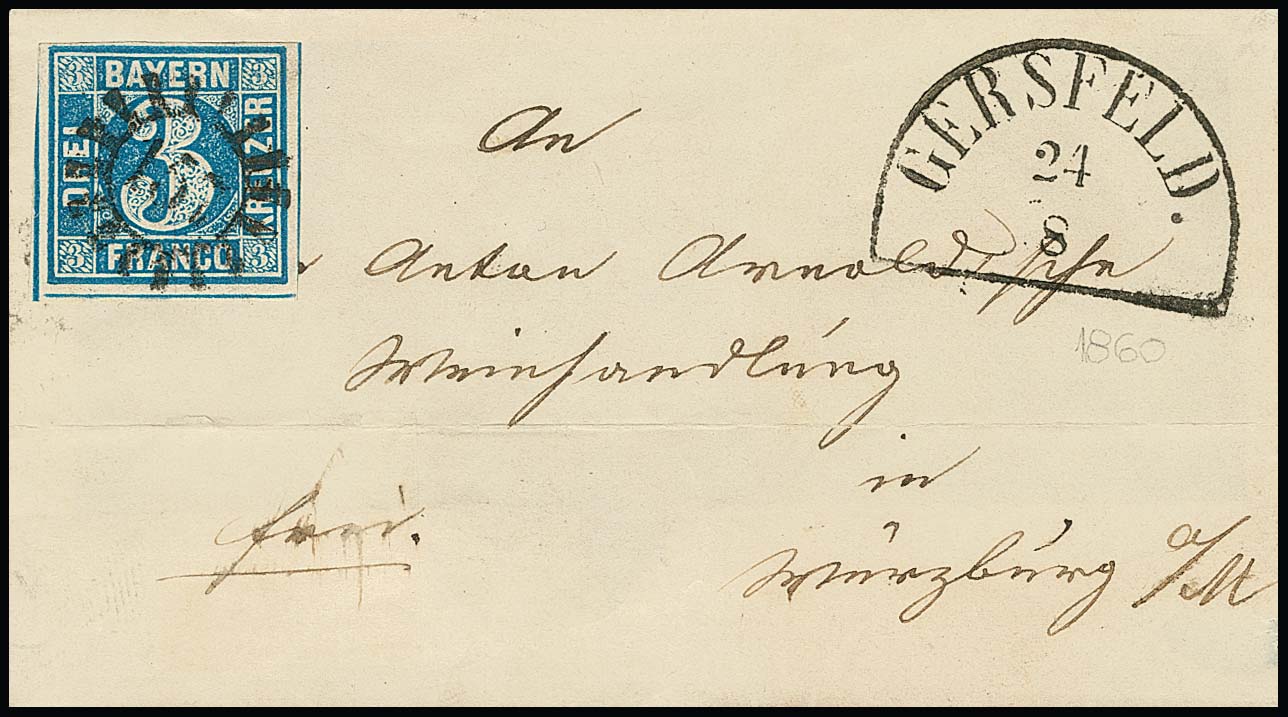 3 BAYERN 3
DREI 3 KREUZER
3 FRANCO 3
GERSFELD.
24
8
An
Anton Arnoldische
Weinhandlung
1860
in
frei.
Würzburg a/M